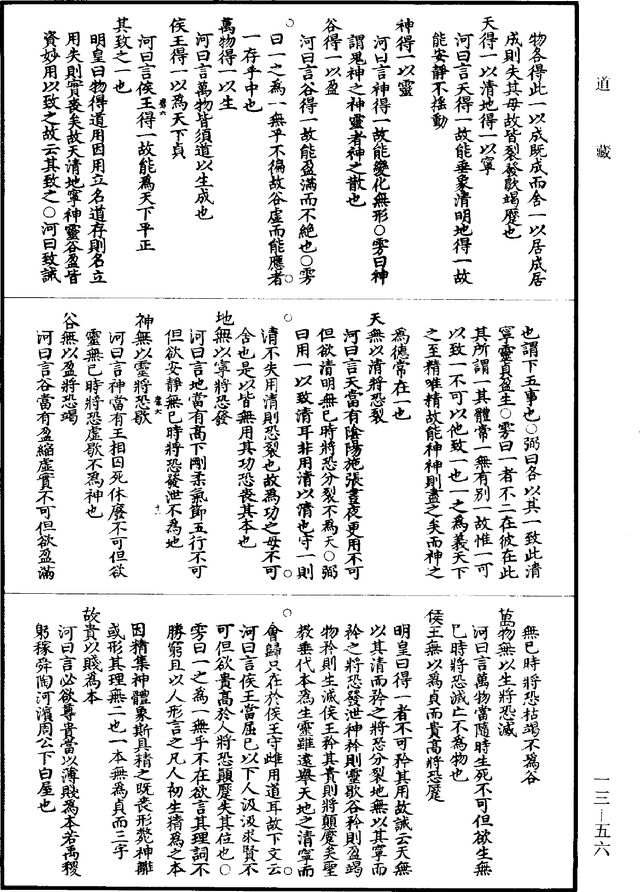 道藏
物各得此一以成既成而舍一以居成居
成則失其母故皆裂發歇竭蹷也
天得一以清地得一以寧
河曰言天得一故能垂象清明地得一故
能安靜不搖動
神得一以靈
河曰言神得一故能變化無形○雱曰神
謂鬼神之神靈者神之散也
谷得一以盈
河曰言谷得一故能盈滿而不絶也○雱
曰一之為一無乎不徧故谷虛而能應者
一存乎中也
萬物得一以生
河曰言萬物皆須道以生成也
侯王得一以為天下貞
河曰言侯王得一故能為天下平正
其致之一也
明皇曰物得道用因用立名道存則名立
用失則實喪矣故天清地寧神靈谷盈皆
資妙用以致之故云其致之○河曰致誡
也謂下五事也○弼曰各以其一致此清
寧靈貞盈生○雱曰一者不二在彼在此
其所謂一其體常一無有別一故惟一可
以致一不可以他致一也一之為義天下
之至精唯精故能神神則盡之矣而神之
為德常在一也
天無以清將恐裂
河曰言天當有陰陽施張晝夜更用不可
但欲清明無已時將恐分裂不為天○弼
曰用一以致清耳非用清以清也守一則
清不失用清則恐裂也故為功之母不可
舍也是以皆無用其功恐喪其本也
地無以寧將恐發
河曰言地當有高下剛柔氣節五行不可
但欲安靜無已時將恐發泄不為地
神無以靈將恐歇
河曰言神當有王相囚死休廢不可但欲
靈無已時將恐虛歇不為神也
谷無以盈將恐竭
河曰言谷當有盈縮虛實不可但欲盈滿
無已時將恐枯竭不為谷
萬物無以生將恐滅
河曰言萬物當隨時生死不可但欲生無
已時將恐滅亡不為物也
侯王無以為貞而貴高將恐蹷
明皇曰得一者不可矜其用故誡云天無
以其清而矜之將恐分裂地無以其寧而
矜之將恐發泄神矜則靈歇谷矜則盈竭
物矜則生滅侯王矜其貴則將顛蹷矣聖
教垂代本為生靈雖遠舉天地之清寧而
會歸只在於侯王守雌用道耳故下文云
河曰言侯王當屈已以下人汲汲求賢不
可但欲貴高於人將恐顛蹷失其位也○
雱曰一之為一無乎不在欲言其理詞不
勝窮且以人形言之凡人初生精為之本
因精集神體象斯具精之既喪形斃神離
或形其理無二也一本無為貞而三字
故貴以賤為本
河曰言必欲尊貴當以薄賤為本若禹稷
躬稼舜陶河濱周公下白屋也
一三—五六